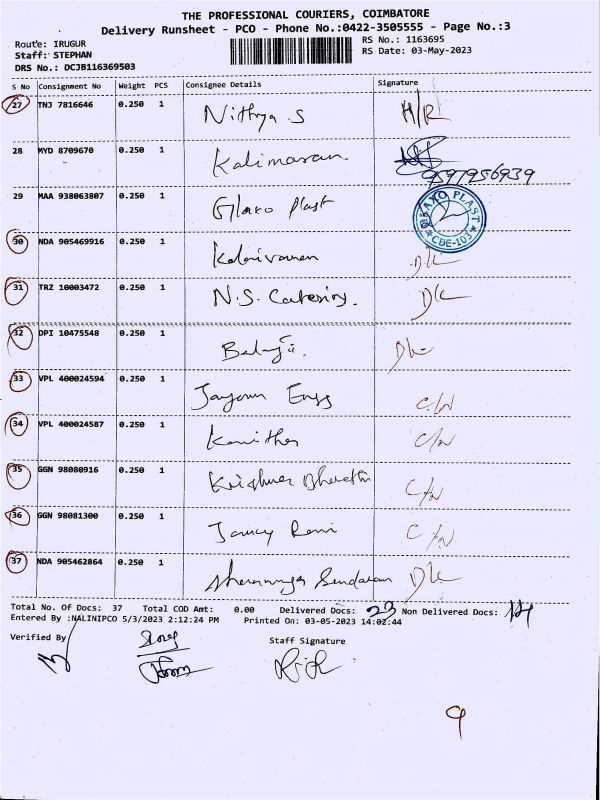 THE PROFESSIONAL COURIERS, COIMBATORE
Delivery Runsheet - PCO - Phone No.:0422-3505555 - Page No.:3
Route: IRUGUR RS No.: 1163695
Staff: STEPHAN RS Date: 03-May-2023
DRS No.: DCJB116369503
S No Consignment No Weight PCS Consignee Details Signature
27 TNJ 7816646 0.250 1 Nithya S H/R
28 MYD 8709670 0.250 1 Kalimaran. 9597956939
29 MAA 938063807 0.250 1 Glaxo Plast PLAST CBE-103
30 NDA 905469916 0.250 1 Kalaivanan DL
31 TRZ 10003472 0.250 1 N.S. Catering. DL
32 DPI 10475548 0.250 1 Balaji. DL
33 VPL 400024594 0.250 1 Engg C/N
34 VPL 400024587 0.250 1 Kavitha C/N
35 GGN 98080916 0.250 1 Krishna Bharathi C/N
36 GGN 98081300 0.250 1 Jancy Rani C/N
37 NDA 905462864 0.250 1 Sundaram DL
Total No. Of Docs: 37 Total COD Amt: 0.00 Delivered Docs: 23 Non Delivered Docs: 14
Entered By :NALINIPCO 5/3/2023 2:12:24 PM Printed On: 03-05-2023 14:02:44
Verified By Staff Signature
9